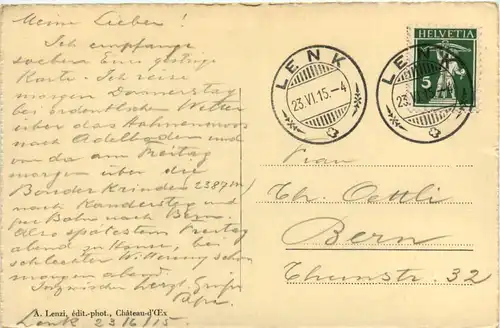 Meine Lieben!
Ich empfange
soeben Eure gestrige
Karte. Ich reise
morgen Donnerstag
bei ordentlichem Wetter
über das Hahnenmoos
nach Adelboden und
von da am Freitag
morgen über die
Bonder Krinden 2387 m/
nach Kandersteg und
per Bahn nach Bern.
Also spätestens Freitag
abend zu Hause, bei
schlechter Witterung schon
morgen abend.
Inzwischen herzl. Grüße
Papa.
Lenk 23/6/15.
A. Lenzi, édit.-phot., Château-d'Œx
LENK
23.VI.15.-4
LENK
23.
HELVETIA
5
Frau
Th. Oettli
Bern
Thunstr. 32